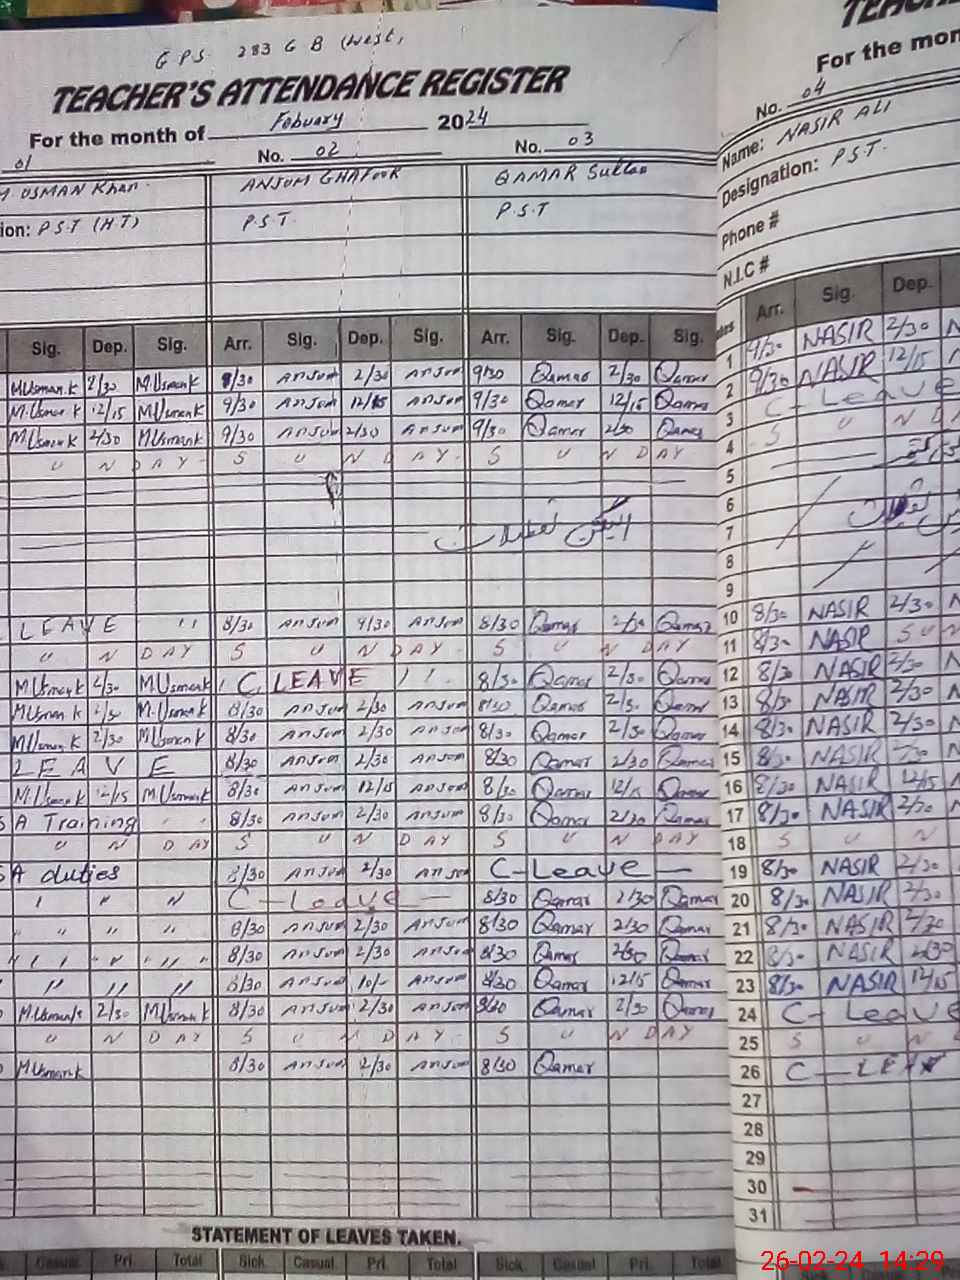 G P S. 283 G B (West,
TEACHER'S ATTENDANCE REGISTER
For the month of Febuary 2024
01 No. 02 No. 03
M. USMAN Khan. ANSUM GHAFOOR QAMAR Sultan
ion: P.S.T (H.T) P.S.T. P.S.T
Sig. Dep. Sig. Arr. Sig. Dep. Sig. Arr. Sig. Dep. Sig.
M.Usman.K 2/30 M.UsmanK 8/30 ANSUM 2/30 ANSUM 9/30 Qamar 2/30 Qamar
M.Usman.K 12/15 M.UsmanK 9/30 ANSUM 12/15 ANSUM 9/30 Qamar 12/15 Qamar
M.UsmanK 2/30 M.UsmanK 9/30 ANSUM 2/30 ANSUM 9/30 Qamar 2/30 Qamar
U N D A Y S U N D A Y. S U N D A Y
الیکشن تعطیلات
LEAVE " 8/30 ANSUM 4/30 ANSUM 8/30 Qamar 2/30 Qamar
U N D A Y S U N D A Y S U N D A Y
M.UsmanK 2/30 M.UsmanK C. LEAVE 8/30 Qamar 2/30 Qamar
M.UsmanK 2/30 M.UsmanK 8/30 ANSUM 2/30 ANSUM 8/30 Qamar 2/30 Qamar
M.UsmanK 2/30 M.UsmanK 8/30 ANSUM 2/30 ANSUM 8/30 Qamar 2/30 Qamar
LEAVE 8/30 ANSUM 2/30 ANSUM 8/30 Qamar 2/30 Qamar
M.UsmanK 12/15 M.UsmanK 8/30 ANSUM 12/15 ANSUM 8/30 Qamar 12/15 Qamar
SA Training 8/30 ANSUM 2/30 ANSUM 8/30 Qamar 2/30 Qamar
U N D A Y S U N D A Y S U N D A Y
SA duties 8/30 ANSUM 2/30 ANSUM C-Leave —
" " " C-Leave — 8/30 Qamar 2/30 Qamar
" " " 8/30 ANSUM 2/30 ANSUM 8/30 Qamar 2/30 Qamar
" " " 8/30 ANSUM 2/30 ANSUM 8/30 Qamar 2/30 Qamar
" " " 8/30 ANSUM 10/- ANSUM 8/30 Qamar 12/15 Qamar
M.UsmanK 2/30 M.UsmanK 8/30 ANSUM 2/30 ANSUM 8/30 Qamar 2/30 Qamar
U N D A Y S U N D A Y. S U N D A Y
M.UsmanK 8/30 ANSUM 2/30 ANSUM 8/30 Qamar
STATEMENT OF LEAVES TAKEN.
Casual Pri. Total Sick Casual Pri. Total Sick Casual Pri. Total
For the mon
No. 04
Name: NASIR ALI
Designation: P.S.T.
Phone #
N.I.C #
Arr. Sig. Dep.
1 9/30 NASIR 2/30
2 9/30 NASIR 12/15
3 C-Leave
4 S U N D A
5
6
7
8
9
10 8/30 NASIR 2/30
11 8/30 NASIR S U N
12 8/30 NASIR 2/30
13 8/30 NASIR 2/30
14 8/30 NASIR 2/30
15 8/30 NASIR 2/30
16 8/30 NASIR 12/15
17 8/30 NASIR 2/30
18 S U N
19 8/30 NASIR 2/30
20 8/30 NASIR 2/30
21 8/30 NASIR 2/30
22 8/30 NASIR 2/30
23 8/30 NASIR 12/15
24 C- Leave
25 S U N
26 C—LEAV
27
28
29
30
31
26-02-24 14:29